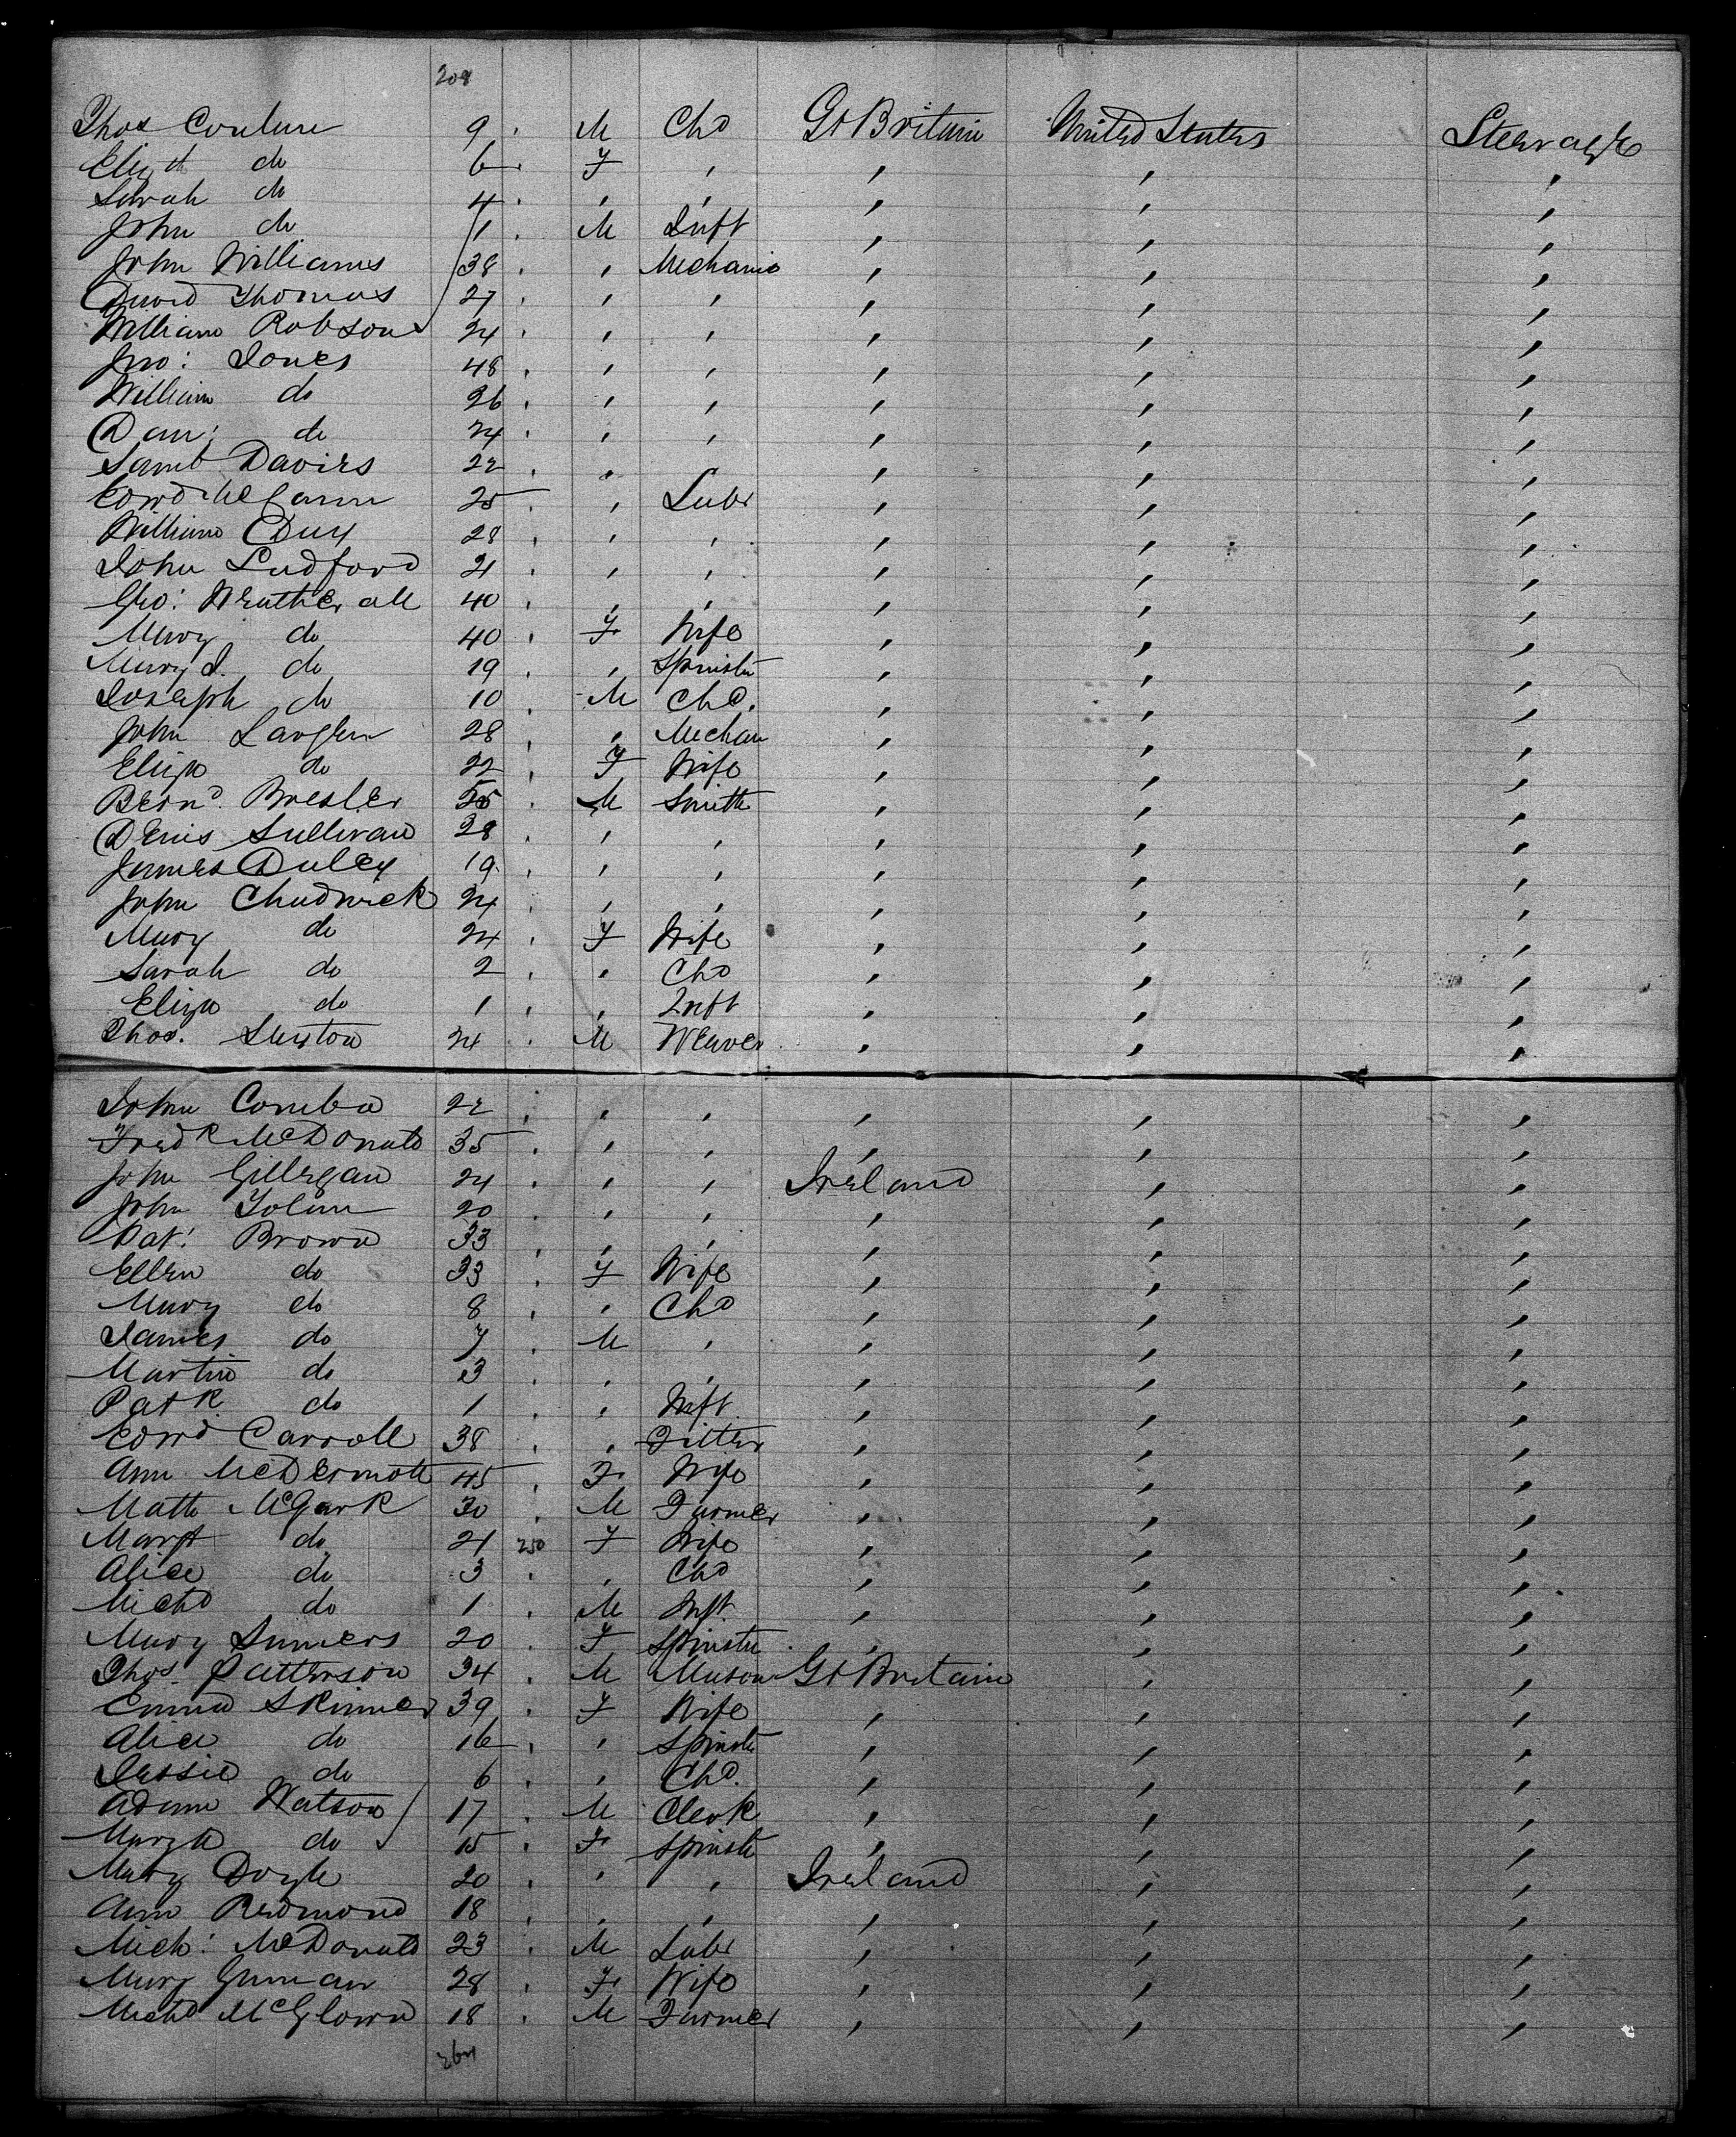 208
Thos Couture 9 . M Chd Gt Britain United States Steerage
Elizth do 6 . F , , , ,
Sarah do 4 . , , , , ,
John do 1 . M Inft , , ,
John Williams 38 . , Mechanic , , ,
David Thomas 27 . , , , , ,
William Robson 24 . , , , , ,
Jno: Jones 48 . , , , , ,
William do 26 . , , , , ,
Dan: do 24 . , , , , ,
Saml Davies 22 . , , , ,
Edwd McCann 25 . , Labr , , ,
William Duy 28 . , , , , ,
John Ludford 21 . , , , , ,
Geo: Weatherall 40 . , , , , ,
Mary do 40 . F Wife , , ,
Mary J. do 19 . , Spinster , , ,
Joseph do 10 . M Chd. , , ,
John Langlen 28 . , Mechan , , ,
Eliza do 22 . F Wife , , ,
Bernd. Bresler . M Smith , , ,
Denis Sullivan 28 . , , , , ,
James Duley 19 . , , , , ,
John Chadwick 24 , , , , ,
Mary do 24 . F Wife , , ,
Sarah do 2 . , Chd , , ,
Eliza do 1 . , Inft , , ,
Thos. Sexton 24 . M Weaver , , ,
John Comba 22 . , , , , ,
Fredk McDonald 35 . , , , , ,
John Gillegan 24 . , , Ireland , ,
John Tolun 20 . , , , , ,
Pat: Brown 33 . , , , , ,
Ellen do 33 . F Wife , , ,
Mary do 8 . , Chd , , ,
James do 7 . M , , , ,
Martin do 3 . , , , , ,
Patk do 1 . , Inft , , ,
Edwd Carroll 38 . , Fitter , , ,
Ann McDermott 45 . F Wife , , ,
Matth McGark 30 . M Farmer , , ,
Margt do 21 250 F Wife , , ,
Alice do 3 . , Chd , , ,
Michl do 1 . M Inft. , , ,
Mary Sumers 20 . F Spinster , , ,
Thos Patterson 34 . M Mason Gt Britain , ,
Emma Skinner 39 . F Wife , , ,
Alice do 16 . , Spinstr , , ,
Jessie do 6 . , Chd. , , ,
Adam Watson 17 . M Clerk , , ,
do 15 . F Spinstr , , ,
Mary Doyle 20 . , , Ireland , ,
Ann Redmond 18 . , , , , ,
Mich: McDonald 23 . M Labr , , ,
Mary Gunan 28 . F Wife , , ,
Michl McGlown 18 . M Farmer , , ,
264